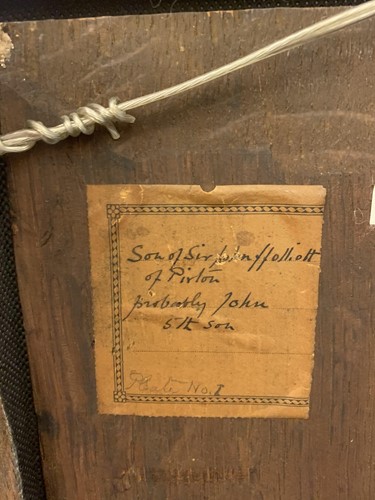 Son of Sir John ffolliott
of Pirton
probably John
5th son
Plate No. I